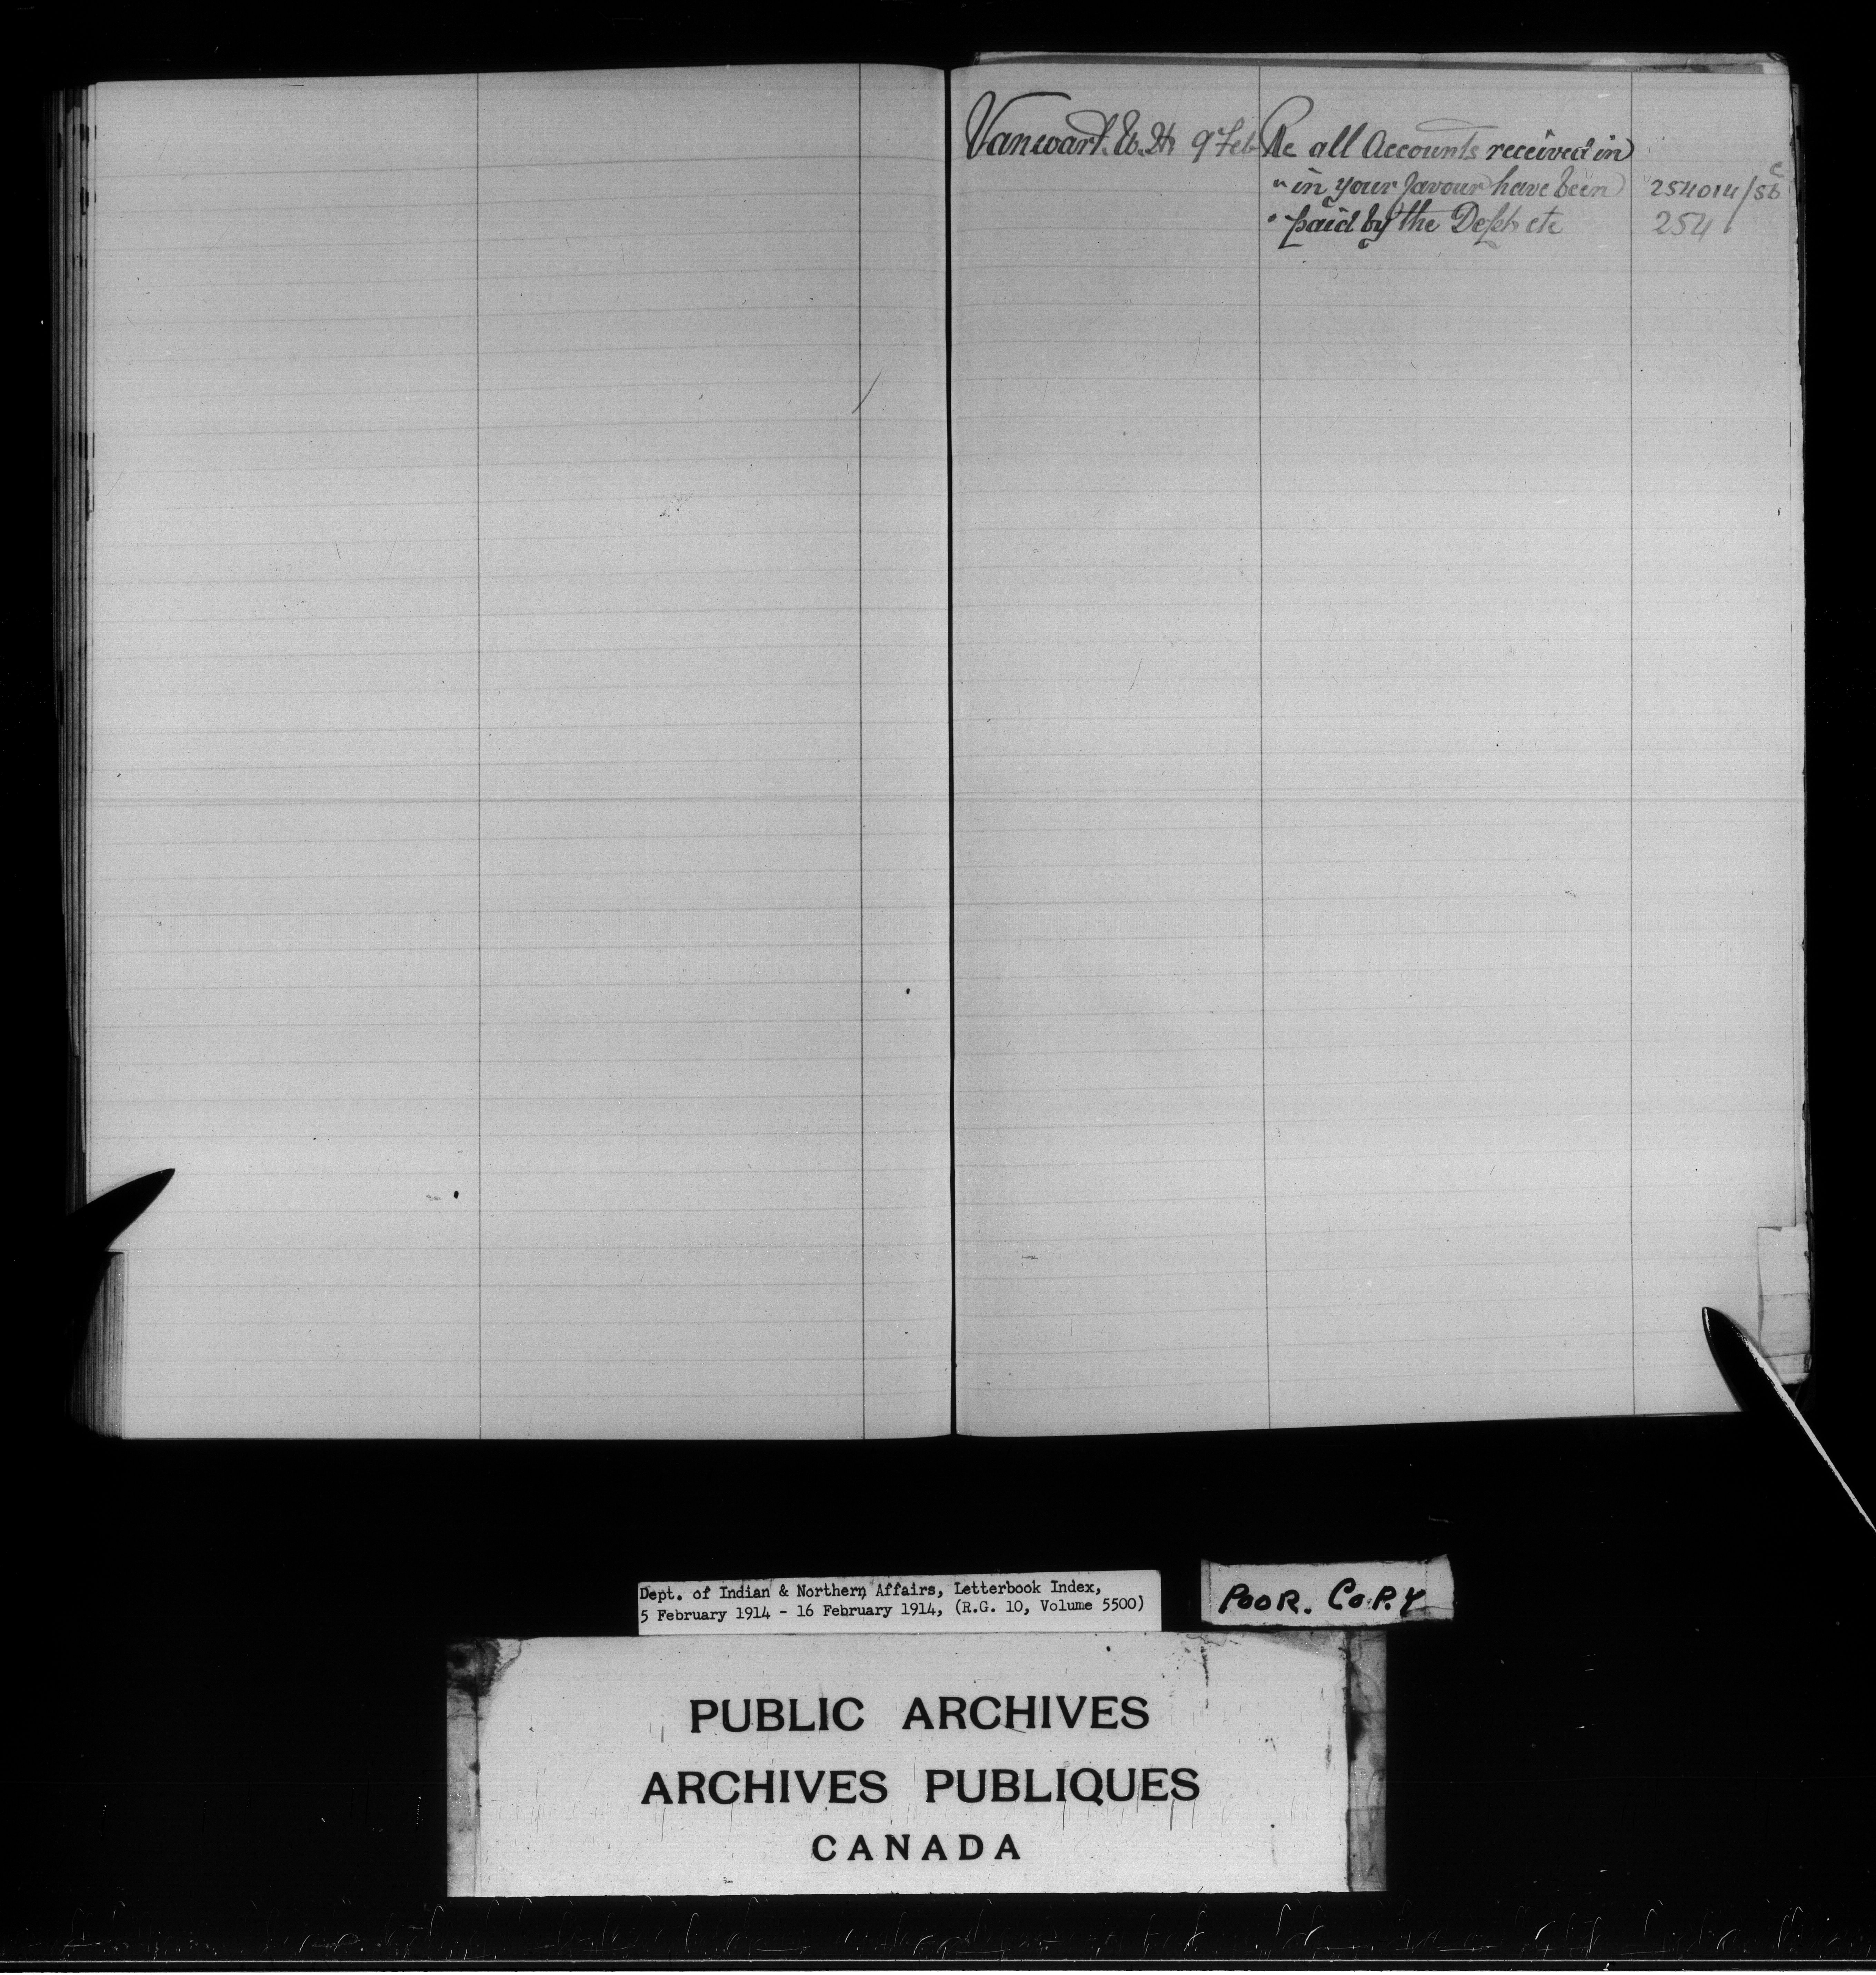 Vanwart. W. H. 9 Feb Re all Accounts received in
" in your favour have been 254014/56 c
" paid by the Dept. etc 254
Dept. of Indian & Northern Affairs, Letterbook Index,
5 February 1914 - 16 February 1914, (R.G. 10, Volume 5500)
POOR. COPY
PUBLIC ARCHIVES
ARCHIVES PUBLIQUES
CANADA